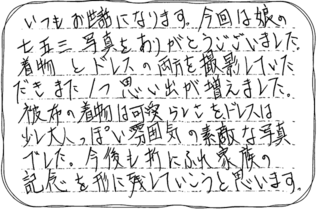 いつもお世話になります。今回は娘の
七五三写真をありがとうございました。
着物とドレスの両方を撮影していた
だきまた1つ思い出が増えました。
被布の着物は可愛らしさをドレスは
少し大人っぽい雰囲気の素敵な写真
でした。今後も折にふれ家族の
記念を形に残していこうと思います。